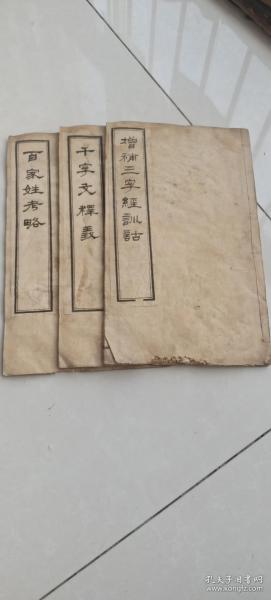 增補三字經訓詁
千字文釋義
百家姓考略
孔夫子旧书网
www.kongfz.com